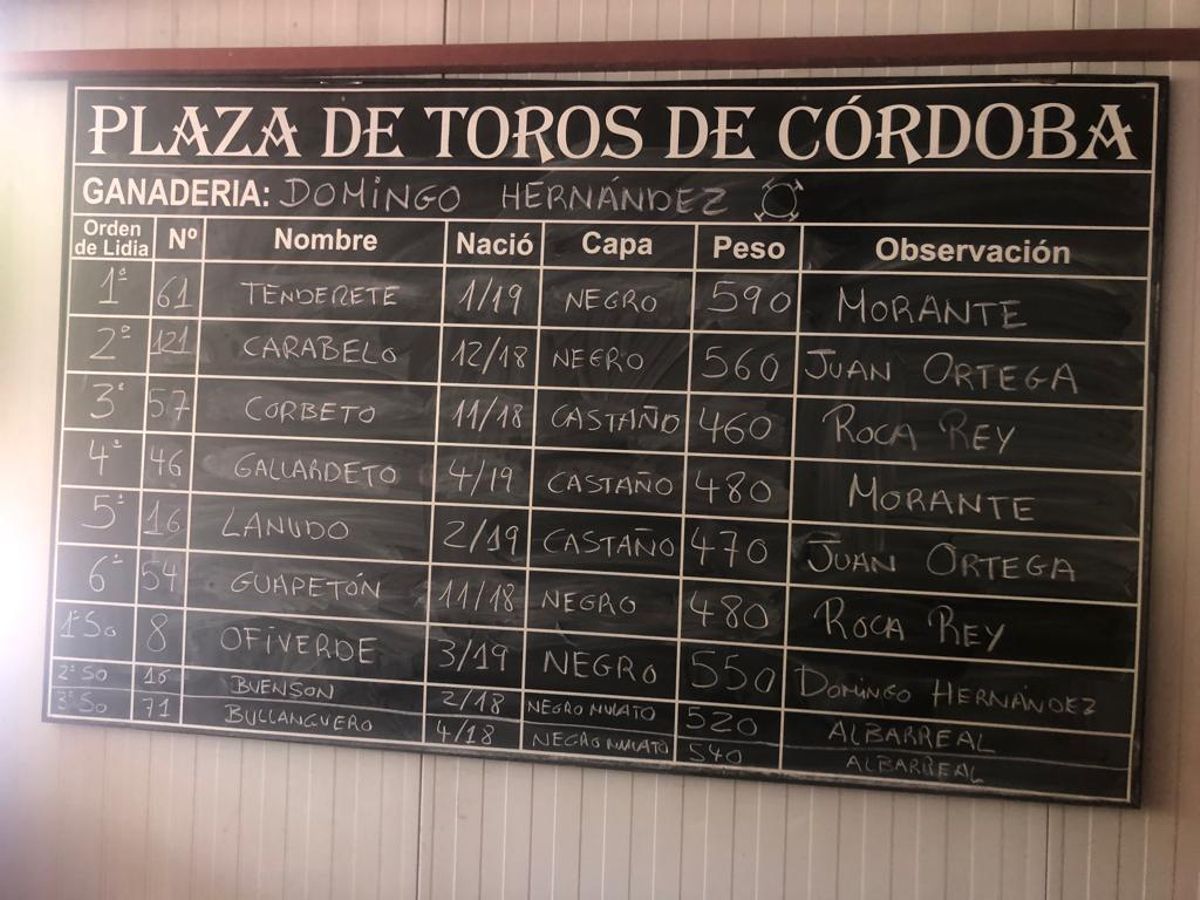 PLAZA DE TOROS DE CÓRDOBA
GANADERIA: DOMINGO HERNÁNDEZ
Orden de Lidia Nº Nombre Nació Capa Peso Observación
1º 61 TENDERETE 1/19 NEGRO 590 MORANTE
2º 121 CARABELO 12/18 NEGRO 560 JUAN ORTEGA
3º 57 CORBETO 11/18 CASTAÑO 460 ROCA REY
4º 46 GALLARDETO 4/19 CASTAÑO 480 MORANTE
5º 16 LANUDO 2/19 CASTAÑO 470 JUAN ORTEGA
6º 54 GUAPETÓN 11/18 NEGRO 480 ROCA REY
1º So 8 OFIVERDE 3/19 NEGRO 550 DOMINGO HERNÁNDEZ
2º So 16 BUENSON 2/18 NEGRO MULATO 520 ALBARREAL
3º So 71 BULLANGUERO 4/18 NEGRO MULATO 540 ALBARREAL